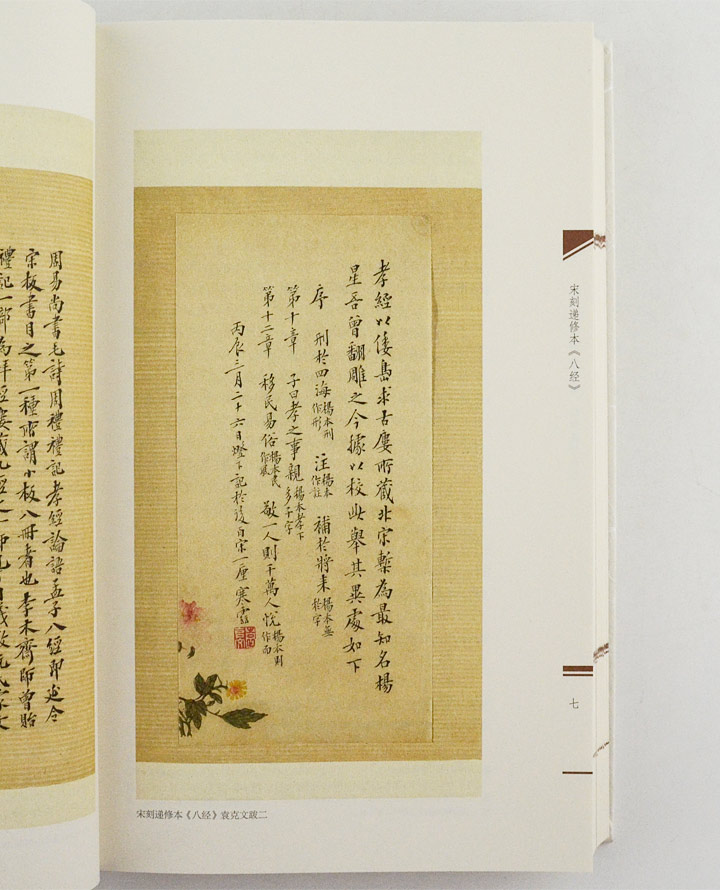 宋刻递修本《八经》
七
孝經以倭島求古廔所藏北宋槧為最知名楊
星吾曾翻雕之今據以校此舉其異處如下
序 刑於四海楊本刑作形 注楊本作註 補於將来楊本無於字
第十章 子曰孝之事親楊本孝下多子字
第十二章 移民易俗楊本民作風 敬一人則千萬人悦楊本則作而
丙辰三月二十六日燈下記於後百宋一廛寒雲
宋刻递修本《八经》袁克文跋二
周易尚書毛詩周禮禮記孝經論語孟子八經即延令
宋板書目之第一種所謂小板八冊者也李木齊師曾貽
禮記一部為拜經廔藏九經之一即